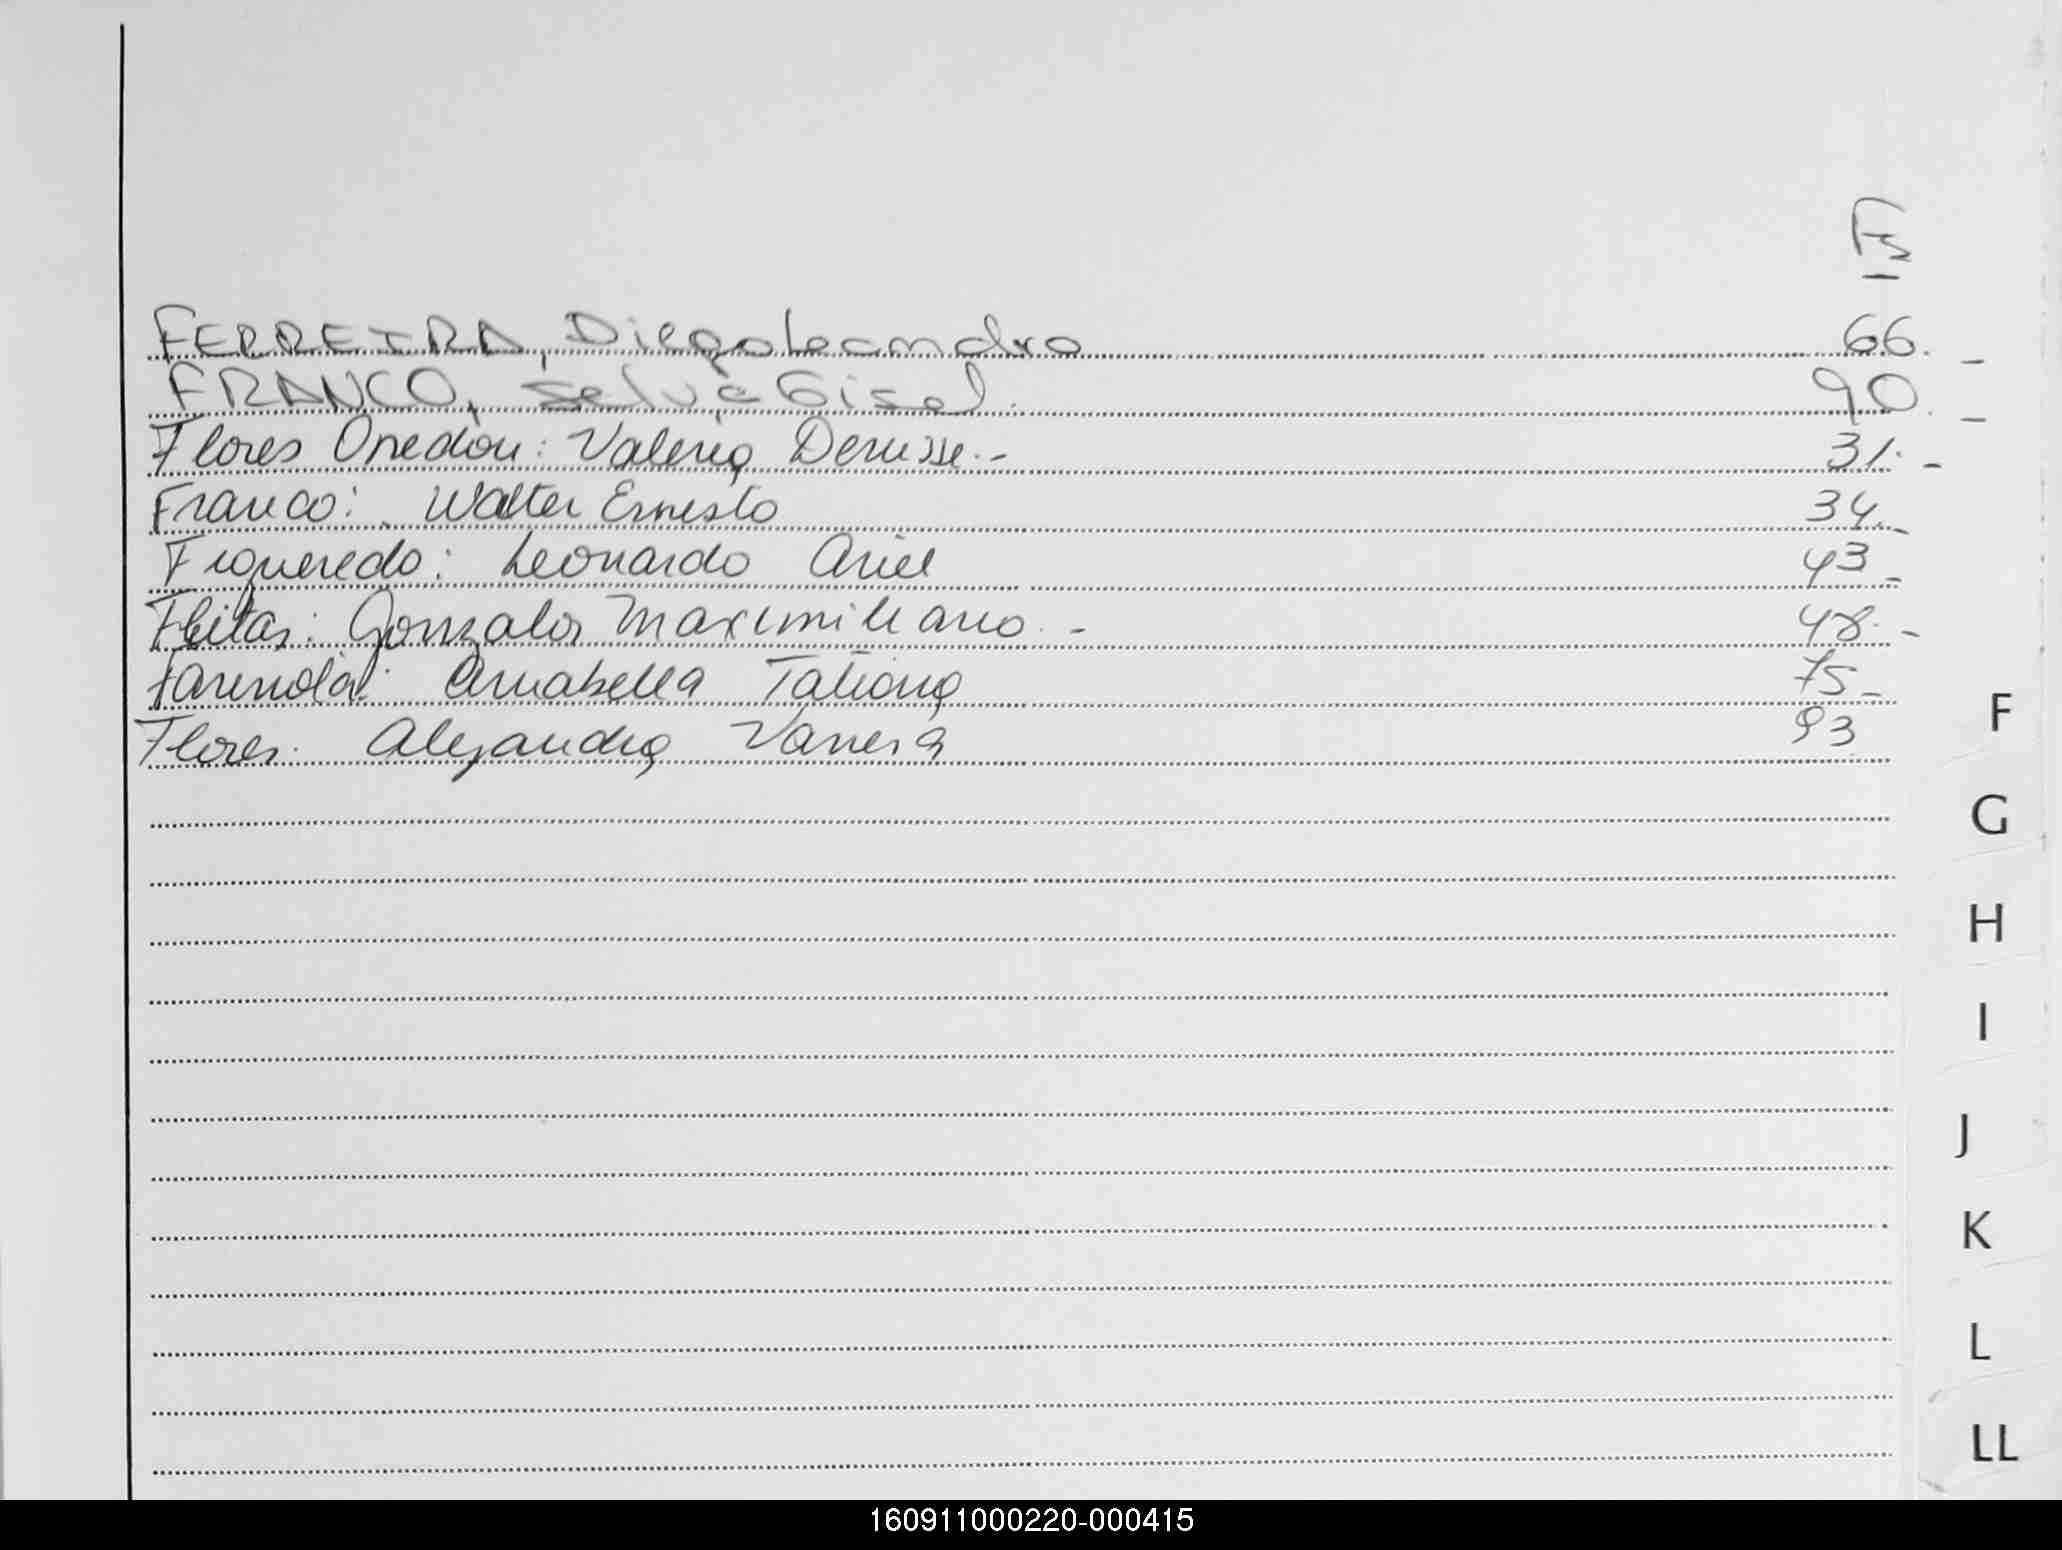 Fs
FERREIRA, Diego Leandro 66. -
FRANCO, Selva Gisel. 90. -
Flores Onedou: Valeria Denisse.- 31. -
Franco: Walter Ernesto 34. -
Figueredo: Leonardo Ariel 43 -
Fleitas: Gonzalo Maximiliano. - 48. -
Anabella Tatiana 75 -
Flores. Alejandra Vanesa 93
F
G
H
I
J
K
L
LL
160911000220-000415